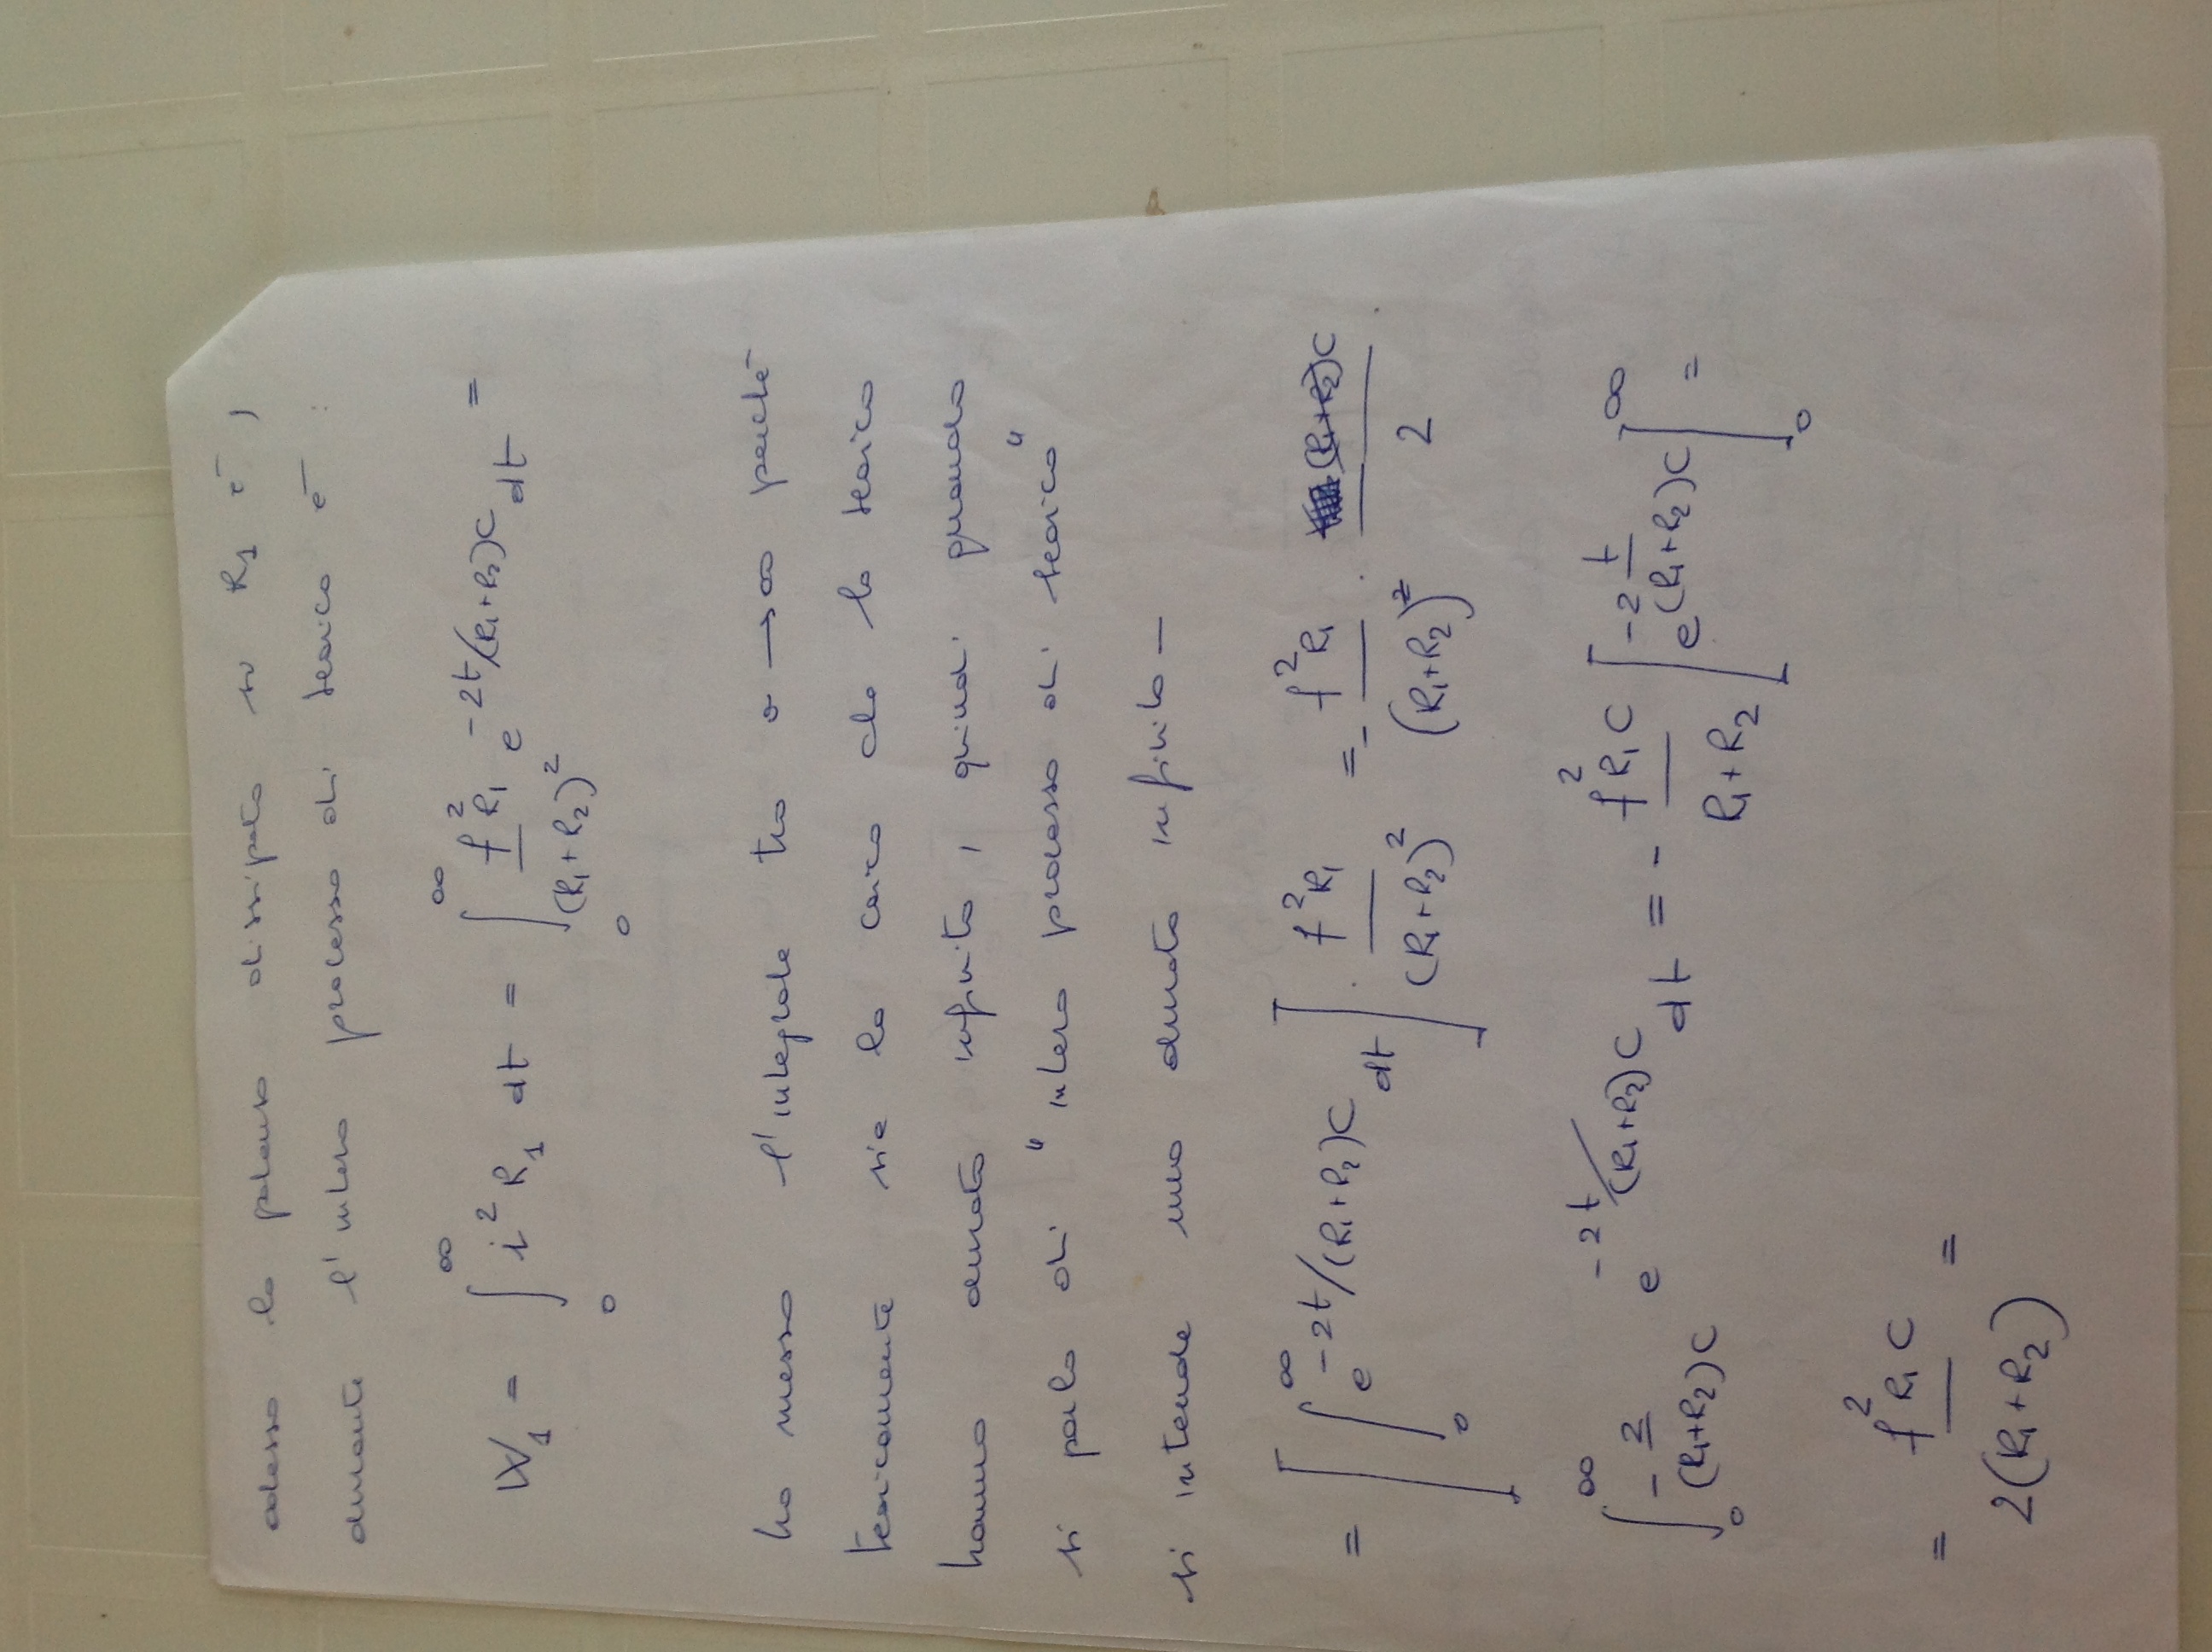 adesso la potenza dissipata su R₁ è,
durante l'intero processo di scarica è :
W₁ = ∫₀^∞ i² R₁ dt = ∫₀^∞ f² R₁ / (R₁+R₂)² e^(-2t/(R₁+R₂)C) dt =
ho messo l'integrale tra 0 → ∞ perché
teoricamente sia la carica che la scarica
hanno durata infinita, quindi quando
si parla di "intero processo di scarica"
si intende una durata infinita -
= [ ∫₀^∞ e^(-2t/(R₁+R₂)C) dt ] · f² R₁ / (R₁+R₂)² = - f² R₁ / (R₁+R₂)² · (R₁+R₂)C / 2 ·
∫₀^∞ - 2 / (R₁+R₂)C e^(-2t/(R₁+R₂)C) dt = - f² R₁ C / R₁+R₂ [ e^(-2 t/(R₁+R₂)C) ]₀^∞ =
= f² R₁ C / 2(R₁+R₂) =